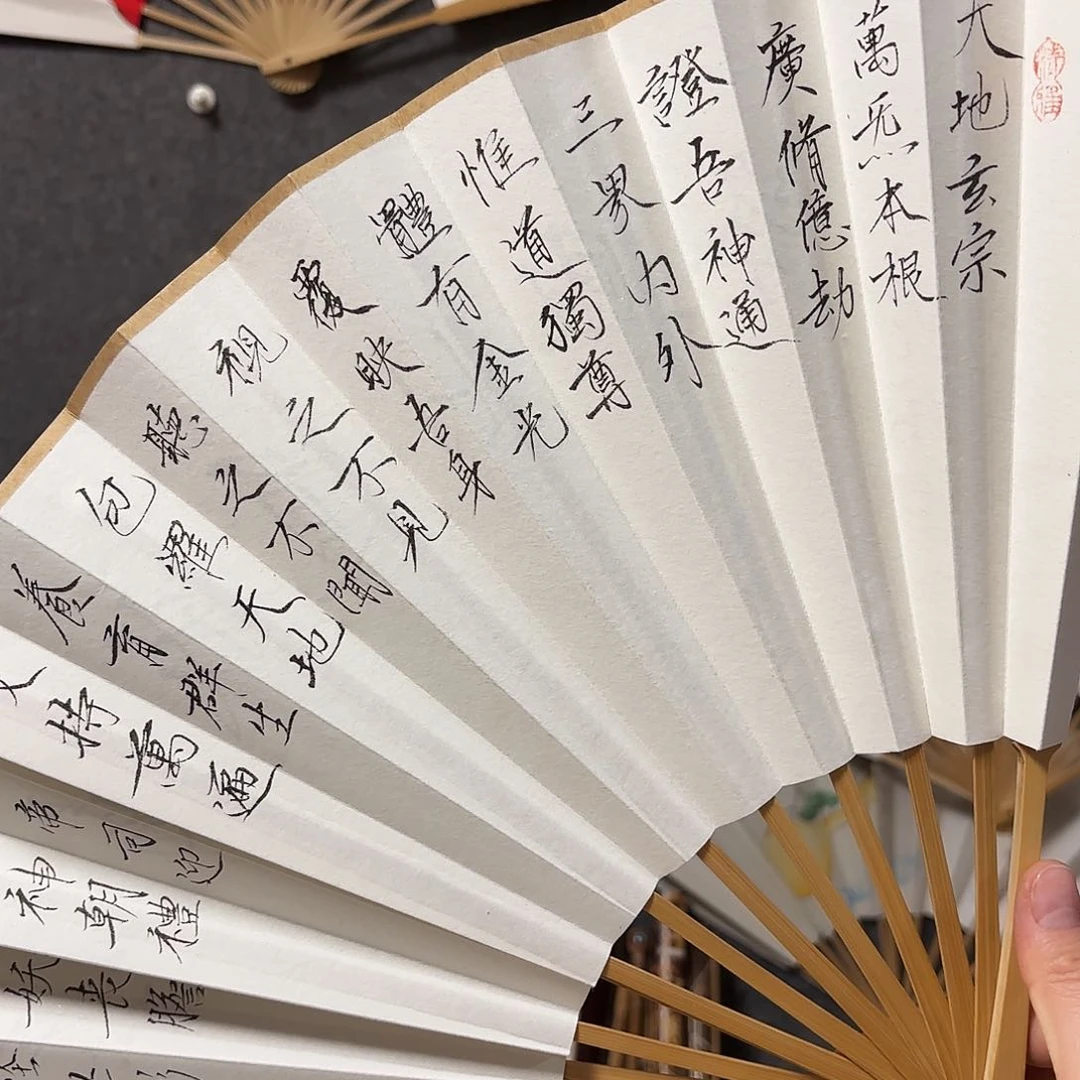 天地玄宗
萬炁本根
廣脩億劫
證吾神通
三界内外
惟道獨尊
體有金光
覆映吾身
視之不見
聽之不聞
包羅天地
養育群生
持萬遍
帝司迎
神朝禮
妖喪膽